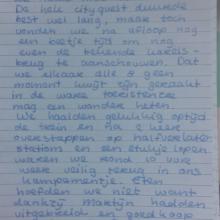 De hele cityquest duurde
best wel lang, maar toch
vonden we na afloop nog
een beetje tijd om nog
even de
brug te aanschouwen. Dat
we elkaar alle 8 geen
moment kwijt zijn geraakt
in de toeristen
mag een wonder heten.
We haalden gelukkig optijd
de trein en na 2 keer
overstappen op
station en een stukje lopen
waren we rond 10 uur
weer veilig terug in ons
kampementje. Eten
hoefden we niet want
dankzij Martijn hadden
uitgebreid en goedkoop